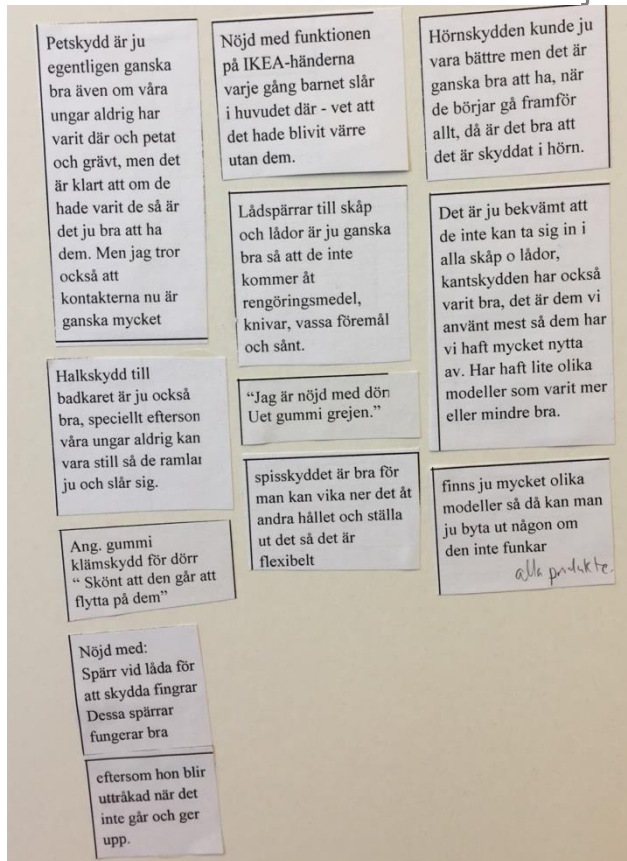 Petskydd är ju
egentligen ganska
bra även om våra
ungar aldrig har
varit där och petat
och grävt, men det
är klart att om de
hade varit de så är
det ju bra att ha
dem. Men jag tror
också att
kontakterna nu är
ganska mycket
Halkskydd till
badkaret är ju också
bra, speciellt efterson
våra ungar aldrig kan
vara still så de ramlar
ju och slår sig.
Ang. gummi
klämskydd för dörr
“ Skönt att den går att
flytta på dem”
Nöjd med:
Spärr vid låda för
att skydda fingrar
Dessa spärrar
fungerar bra
eftersom hon blir
uttråkad när det
inte går och ger
upp.
Nöjd med funktionen
på IKEA-händerna
varje gång barnet slår
i huvudet där - vet att
det hade blivit värre
utan dem.
Lådspärrar till skåp
och lådor är ju ganska
bra så att de inte
kommer åt
rengöringsmedel,
knivar, vassa föremål
och sånt.
“Jag är nöjd med dörr
Uet gummi grejen.”
spisskyddet är bra för
man kan vika ner det åt
andra hållet och ställa
ut det så det är
flexibelt
Hörnskydden kunde ju
vara bättre men det är
ganska bra att ha, när
de börjar gå framför
allt, då är det bra att
det är skyddat i hörn.
Det är ju bekvämt att
de inte kan ta sig in i
alla skåp o lådor,
kantskydden har också
varit bra, det är dem vi
använt mest så dem har
vi haft mycket nytta
av. Har haft lite olika
modeller som varit mer
eller mindre bra.
finns ju mycket olika
modeller så då kan man
ju byta ut någon om
den inte funkar
alla produkte.